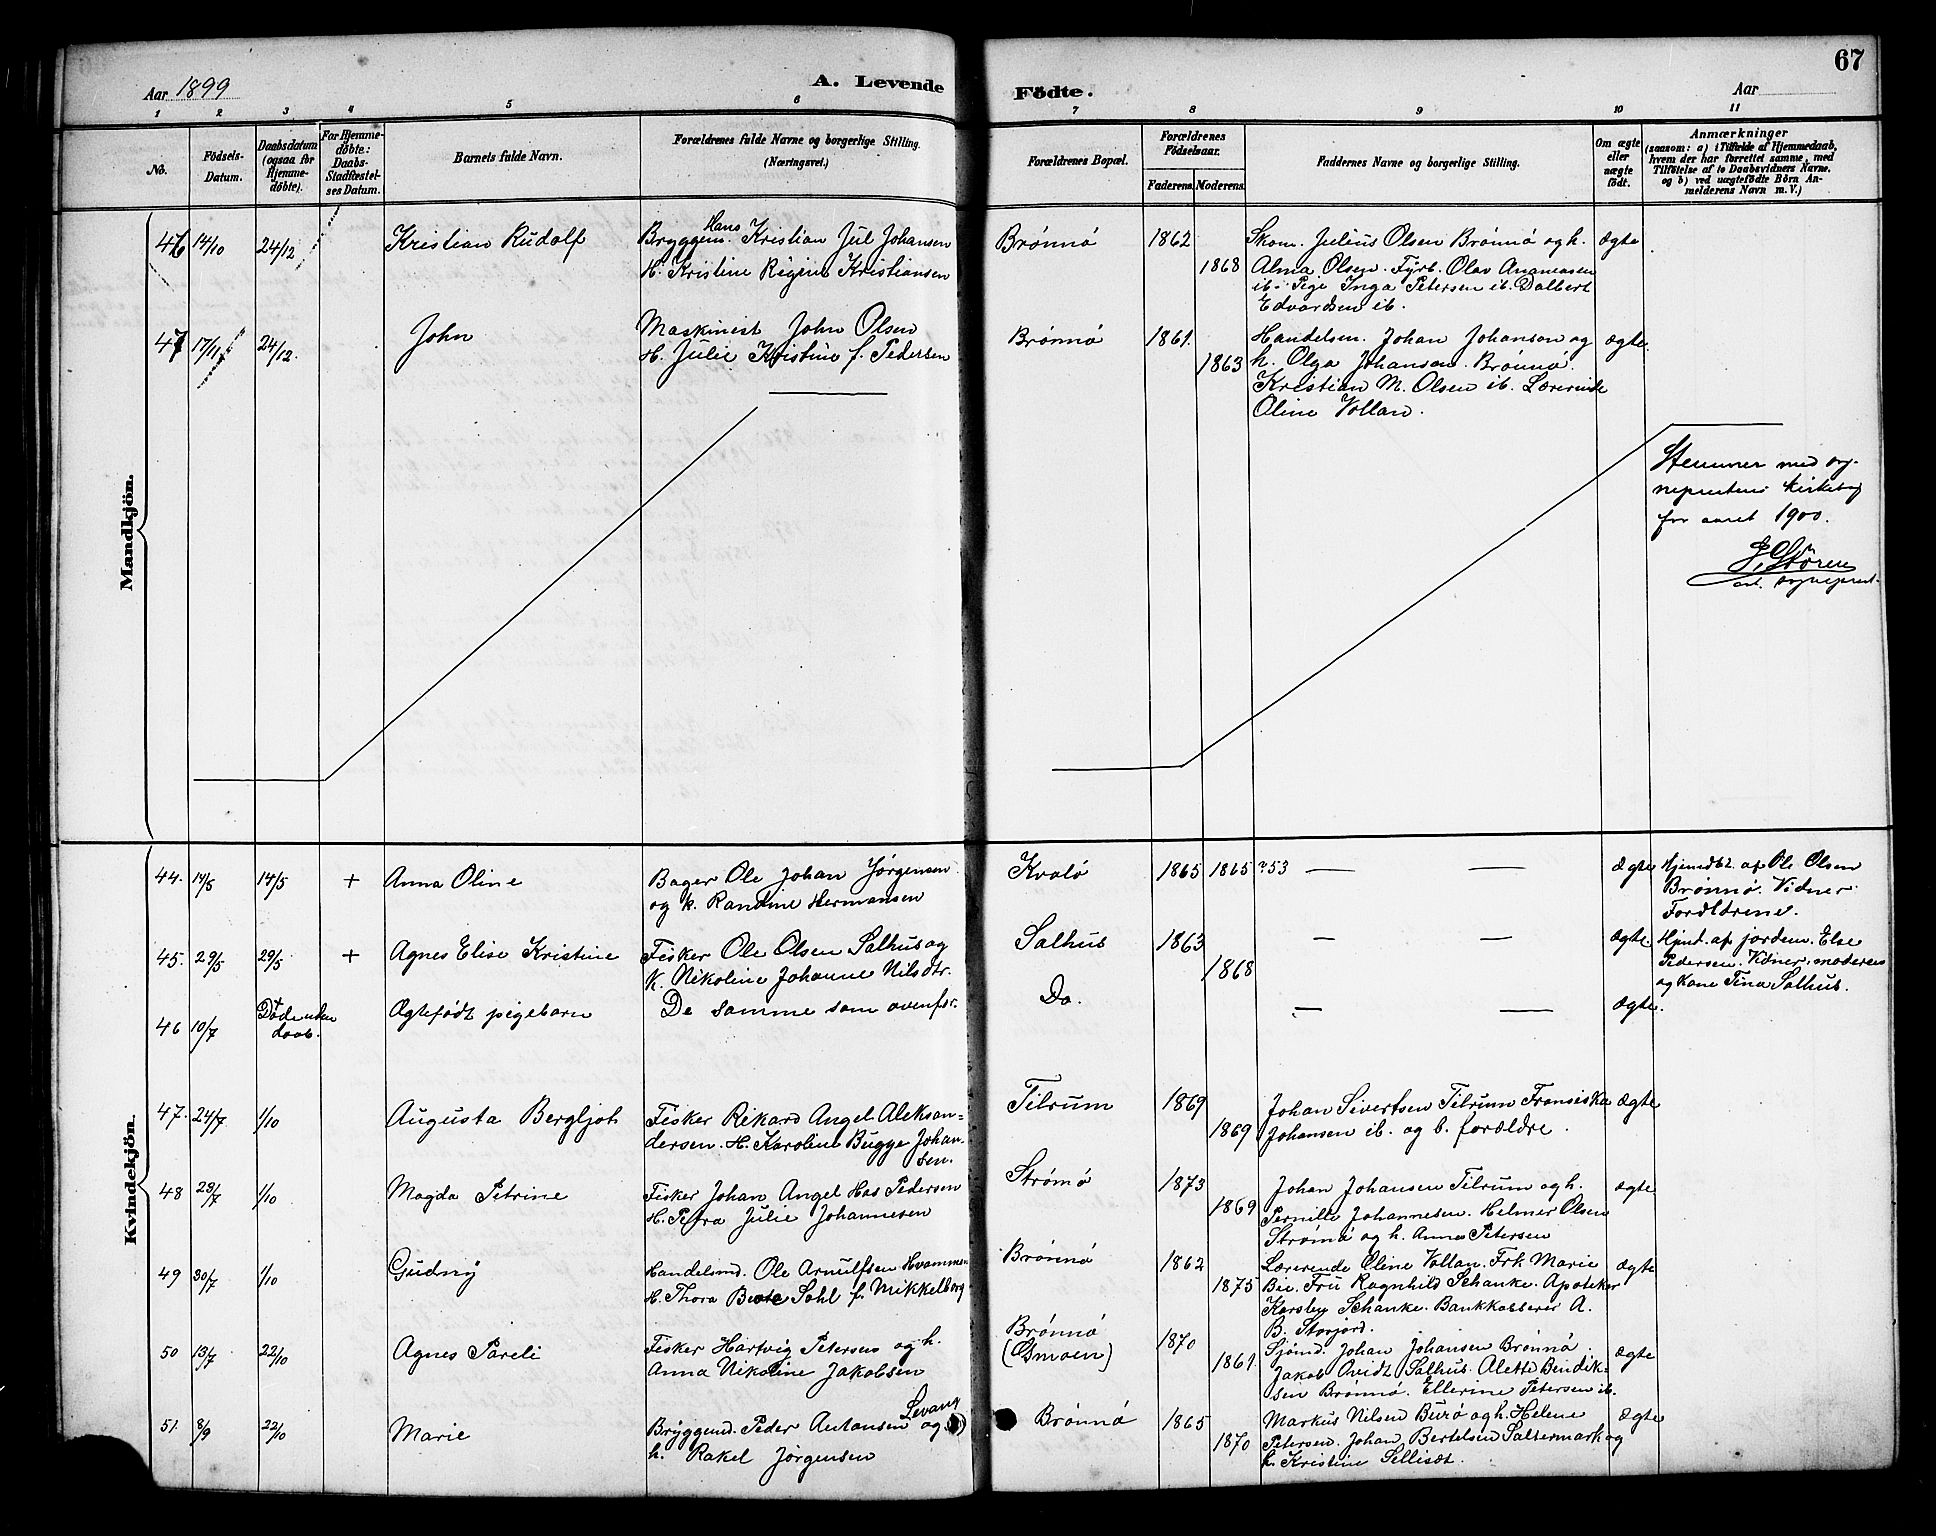 67
Aar 1899
A. Levende
Födte.
Aar
1 2 3 4 5 6 7 8 9 10 11
No.
Födsels-
Datum.
Daabsdatum
(ogsaa for
Hjemme-
döbte).
For Hjemme-
döbte:
Daabs-
Stadfæstel-
ses Datum.
Barnets fulde Navn.
Forældrenes fulde Navne og borgerlige Stilling.
(Næringsvei.)
Forældrenes Bopæl.
Forældrenes
Födselsaar.
Faderens.
Moderens.
Faddernes Navne og borgerlige Stilling.
Om ægte
eller
uægte
födt.
Anmærkninger
(saasom: a) i Tilfælde af Hjemmedaab,
hvem der har forrettet samme, med
Tilföielse af to Daabsvidners Navne,
og b) ved uægtefödte Börn An-
melderens Navn m. V.)
Mandkjön.
46 14/10 24/12 Kristian Rudolf
Bryggem. Hans Kristian Jul Johansen
H. Kristine Regine Kristiansen
Brønnø 1862 1868
Skom. Julius Olsen Brønnø og h.
Alma Olsen. Fyrb. Olav Ananiasen
ib. Pige Inga Petersen ib. Dalbert
Edvardsen ib.
Ægte
47 17/11 24/12. John
Maskinist John Olsen
H. Julie Kristine f. Pedersen
Brønnø 1861. 1863
Handelsm. Johan Johanson og
h. Olga Johansen. Brønnø.
Kristian M. Olsen ib. Lærerinde
Oline Vollan.
ægte.
Stemmer med sog-
neprestens kirkebog
for aaret 1900.
Støren
sogneprest.
Kvindekjön.
44. 14/5 14/5 + Anna Oline
Bager Ole Johan Jørgensen
og k. Randine Hermansen
Kvalø 1865 1865 ?53 — —
Ægte
Hjemdbt. af Ole Olsen
Brønnø. Vidner
Forældrene.
45. 29/5 29/5 + Agnes Elise Kristine
Fisker Ole Olsen Salhus og
K. Nikoline Johanne Nilsdtr.
Salhus 1863 1868 — —
ægte.
Hjmd. af jordem. Else
Pedersen. Vidner, moderen
og Kone Tina Salhus.
46 10/7 + Døde uden
daab.
Ægtefødt pigebarn
De samme som ovenfor.
Do. — — ægte.
47. 24/7 1/10 Augusta Bergljot
Fisker Rikard Angel Aleksan-
dersen. H. Karoline Bugge Johan-
sen.
Tilrum 1869 1869
Johan Sivertsen Tilrum Fransiska
Johansen ib. og b. forældre.
Ægte
48 23/7 1/10 Magda Petrine
Fisker Johan Angel Has Pedersen
H. Petra Julie Johannesen
Strømø 1873 1869
Johan Johansen Tilrum og h.
Pernille Johannesen. Helmer Olsen
Strømø og h. Anna Petersen
ægte
49 30/7 1/10 Gudny
Handelsmd. Ole Arnulfsen Hvammen
H. Thora Sahl f. Mikkelborg
Brønnø 1862 1875
Lærerende Oline Vollan. Frk. Marie
Bie. Fru Ragnhild Schanke. Apoteker
Karsten Schanke. Bankkasserer A.
B. Storjord.
ægte
50 13/7 22/10 Agnes Pareli
Fisker Hartvig Petersen og h.
Anna Nikoline Jakobsen
Brønnø
(Gmoen)
1870 1861.
Sjømd. Johan Johansen Brønnø.
Jakob Qvidt Salhus. Alette Bendik-
sen Brønnø. Ellerine Petersen ib.
ægte
51. 8/9 22/10 Marie
Bryggemd. Peder Antonsen Levang og
h. Rakel Jørgensen
Brønnø 1865 1870
Markus Nilsen Burø og h. Helene
Petersen. Johan Bertelsen Saltermark og
h. Kristine Sellisæt.
ægte